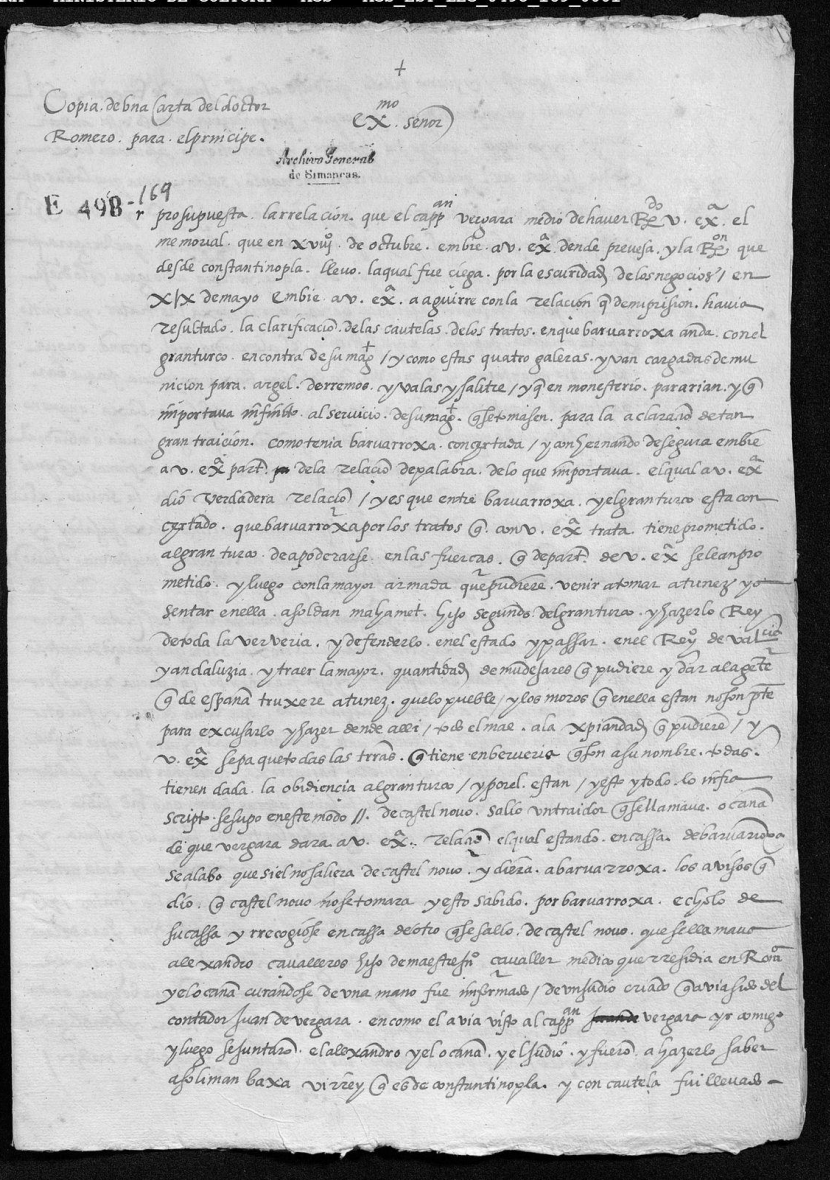 +
Copia de bna Carta del doctor
Romero . para . el principe .
ex.mo Señor
Archivo General
de Simancas.
E 498-169
prosupuesta . la rrelación . que el capp.an vergara medio de haver R.do v. ex.a el
memorial . que en xviij . de octubre . embie . a v. ex.a dende prevesa . y la R.on que
desde constantinopla . llevo . la qual fue ciega . por la escuridad de los negocios / en
XIX de mayo embie . a v. ex.a a aguirre con la relación q de mi prision . havia
resultado . la clarificacio . de las cautelas . de los tratos . en que barvarroxa anda . con el
gran turco . en contra de su mag.t / y como estas quatro galeras . yvan cargadas de mu
nicion para . argel . de rremos . y valas y salitre / y q en monesterio . pararian . y q
importava infinito . al servicio . de su mag.t . q se tomasen . para la aclaracio de tan
gran traición . como tenia barvarroxa . concertada / y con hernando de segura embie
a v. ex.a part. dela relacio de palabra . delo que importava . el qual a v. ex.a
dió verdadera relacio / y es que entre barvarroxa . y el gran turco esta con
certado . que barvarroxa por los tratos q . con v. ex.a trata . tiene prometido .
al gran turco . de apoderarse . en las fuercas . q de part. de v. ex.a se le an pro
metido . y luego con la mayor armada que pudiere . venir a tomar a tunez y a
sentar en ella . a soldan mahamet . hijo segundo . del gran turco . y hazerlo Rey
de toda la ververia . y defenderlo . en el estado y passar . en el Rey.o de valencia
y andaluzia . y traer la mayor . quantidad de mudejares q pudiere y dar a la gete
q de espana truxere a tunez . que lo pueble / y los moros q en ella estan no son pte
para excusarlo y hazer dende alli / todo el mal . a la xpiandad q pudiere / y
v. ex.a sepa que todas las trras . q tiene en berveria q son a su nombre . todas .
tienen dada . la obidiencia al gran turco / y por el . estan / y esto y todo . lo infra
scripto . se supo en este modo // . de castel novo . salio un traidor q se llamava . ocana
de que vergara dara a v. ex.a . relacio el qual estando . en cassa . de barvarroxa
se alabo que si el no saliera de castel novo . y diera . a barvarroxa . los avisos q
dio . q castel novo no se tomara y esto sabido . por barvarroxa . echolo de
su cassa y rrecogiose en cassa de otro q se fallo . de castel novo . que se llamava
alexandro cavalleros hijo de maestre fn.o cavaller medico que rresidia en Roma
y el ocana curandose de una mano fue informado / de un judio criado q avia sido del
contador Juan de vergara . en como el avia visto al capp.an vergara yr comigo
y luego se juntaro . el alexandro y el ocana . y el judio . y fuero . a hazerlo saber
a soliman baxa virrey q es de constantinopla . y con cautela fui llevado